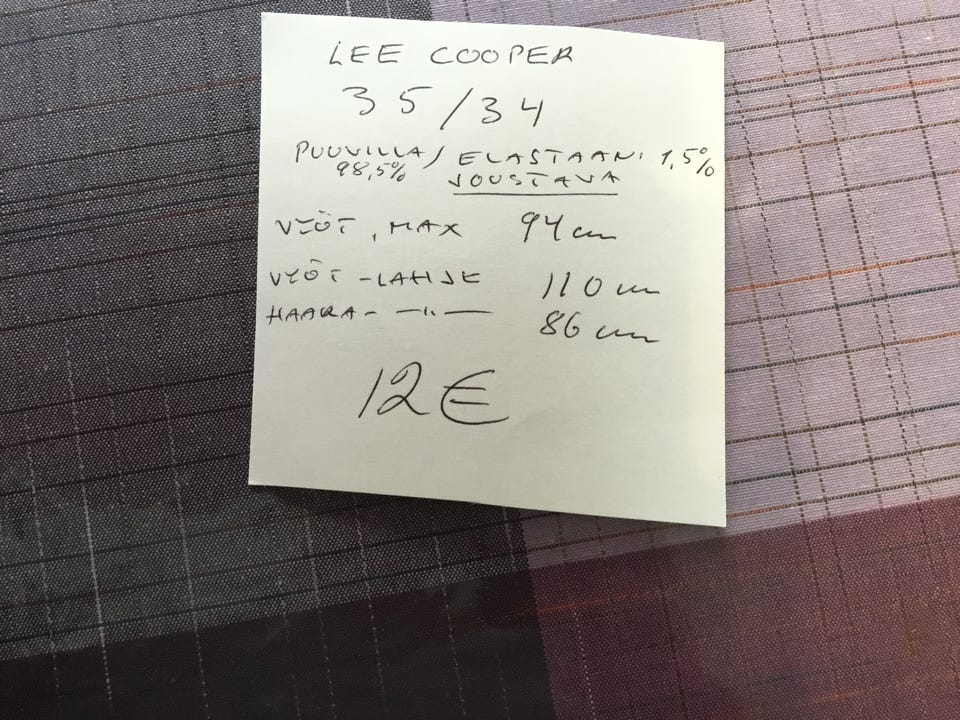 LEE COOPER
35/34
PUUVILLA/ ELASTAANI 1,5%
98,5% JOUSTAVA
VYÖT, MAX 94 cm
VYÖT -LAHJE 110 cm
HAARA- —"— 86 cm
12€